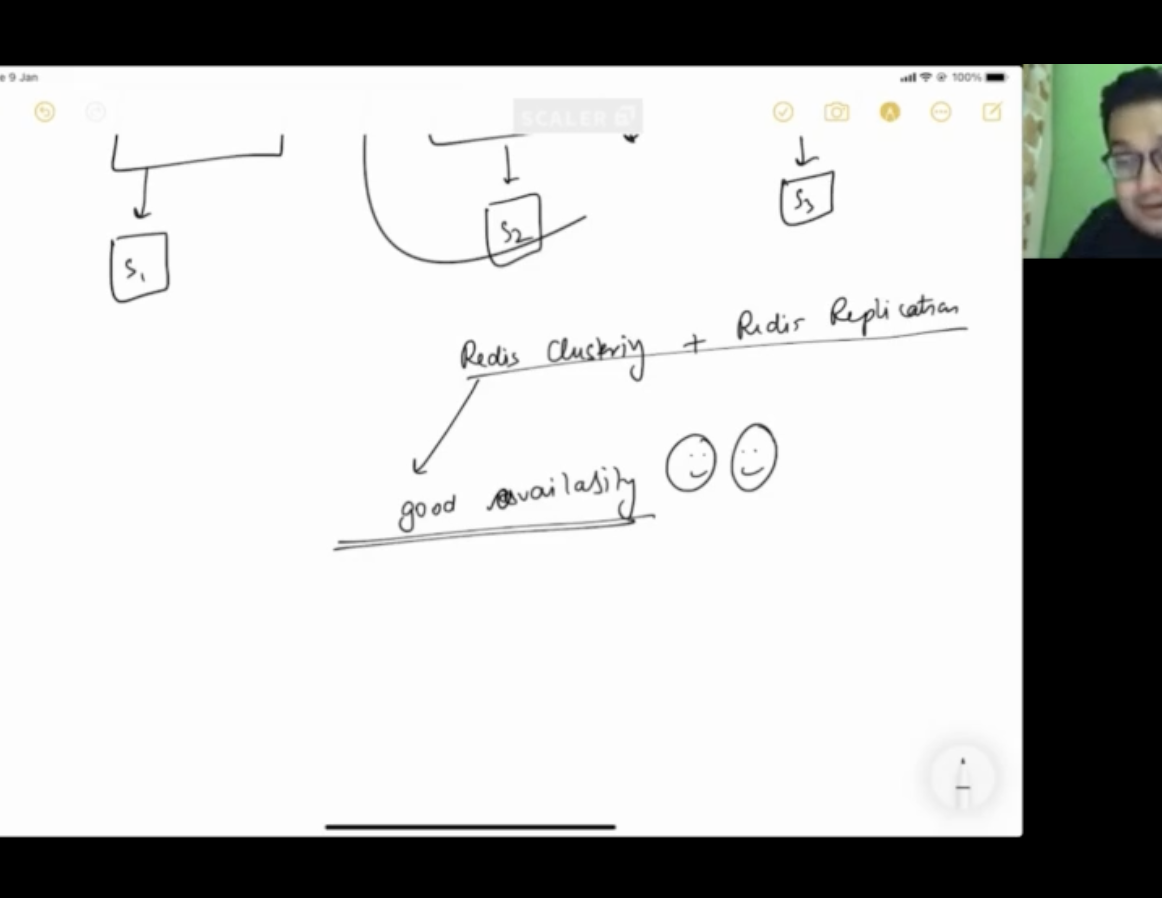 e 9 Jan
100%
SCALER
S1
S2
S3
Redis Clustering + Redis Replication
good availability